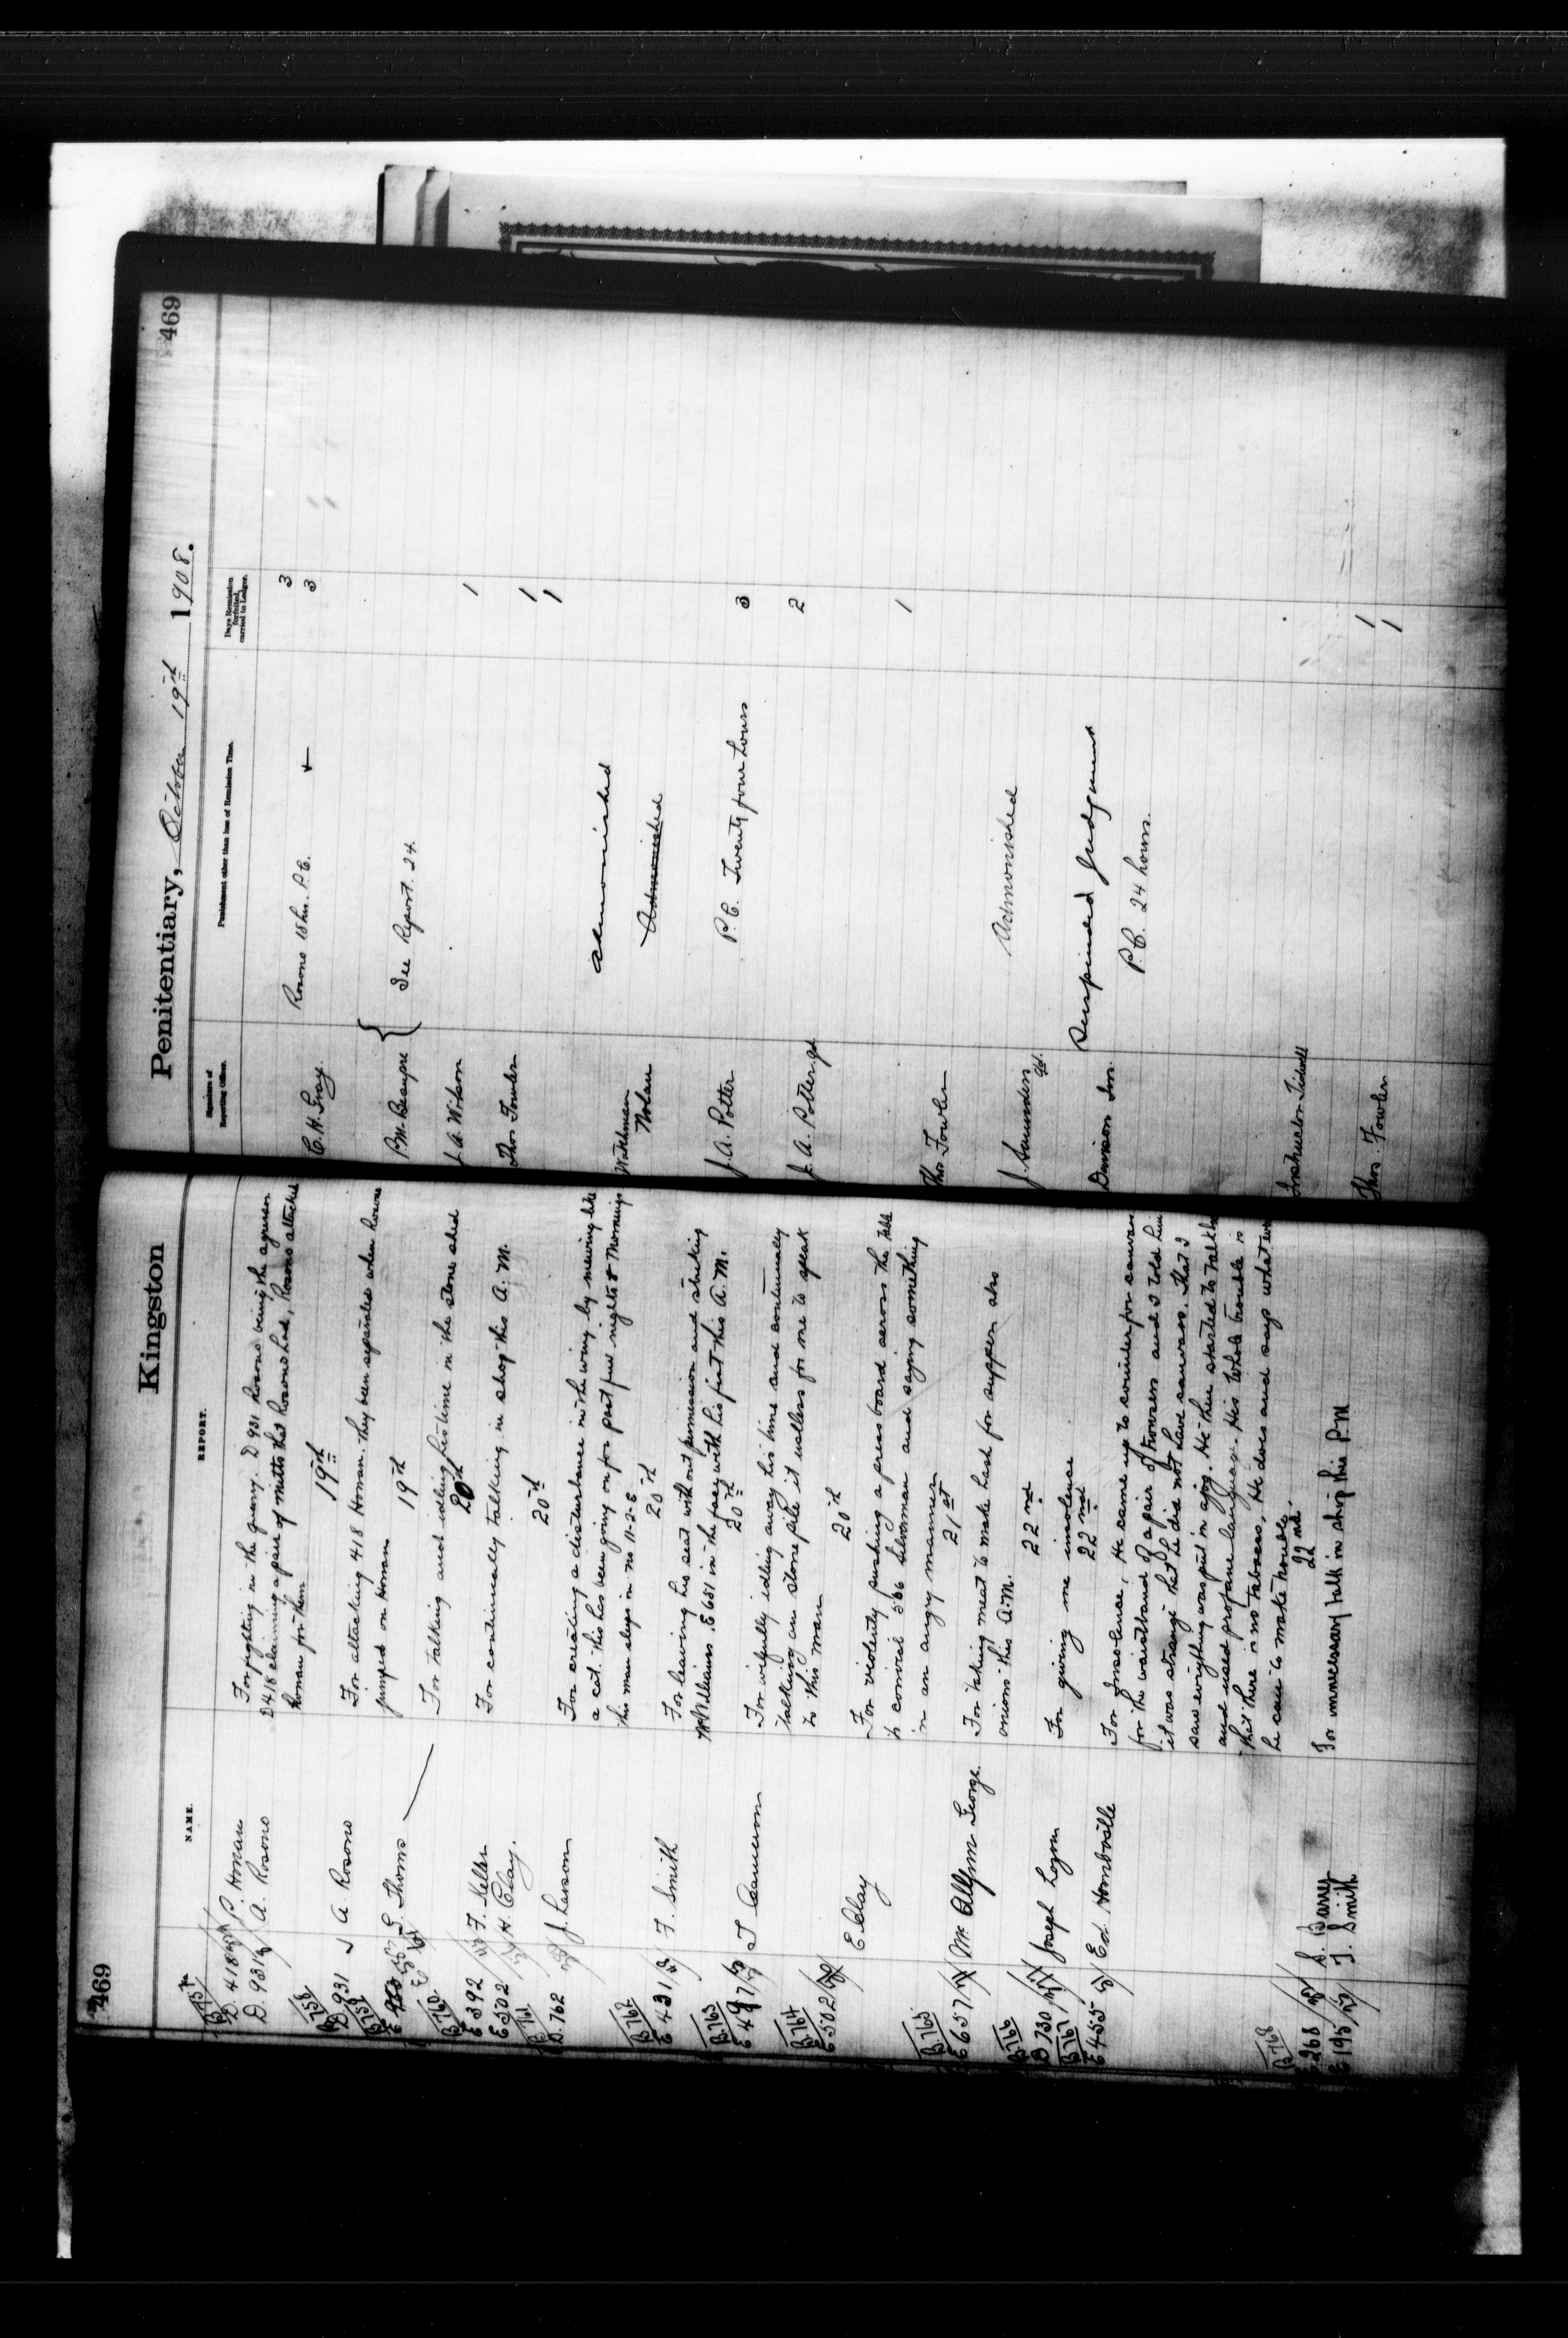 469
Kingston
NAME.
REPORT.
D. 418 P. Honan
D. 931 A. Rosono
For fighting in the quarry. D 931 Rosono being the agressor
D 418 claiming a pair of mitts that Rosono had, Rosono attacked
Honan for them
19th
B. 758
D 931 A Rosono
For attacking 418 Honan. They been separated when Rosono
jumped on Honan
19th
B 759
Thoms
For talking and idling his time in the stone shed
20th
B. 760
E 392 F. Keller
E 502 H. Clay.
For continually talking in shop this A. M.
20th
B. 761
D. 762 J. Larson
For creating a disturbance in the wing by mewing like
a cat. This has been going on for past few nights & mornings
this man sleeps in no 11-2-E
20th
B. 762
E 431 F. Smith
For leaving his seat without permission and striking
McWilliams E 651 in the face with his fist this A. M.
20th
B. 763
E 497 T Cameron
For wilfully idling away his time and continually
talking on stone pile it useless for me to speak
to this man
20th
B. 764
E 502 E. Clay
For violently pushing a press board across the table
to convict 566 Silverman and saying something
in an angry manner
21st
B. 765
E 657 George
For taking meat to make hash for supper also
onions this A.M.
22nd
B. 766
D 730 Joseph Logan
For giving me insolence
22nd
B 767
E 455 Ed Hornbostle
For Insolence, He came up to counter for canvas
for the waistband of a pair of trowsers and I told him
it was strange that he did not have canvass. That I
saw everything was put in a job. He then started to talk the
and used profane language. His whole trouble is
that there is no tobacco, He does and says what ever
he can to make trouble.
22nd
B. 768
E 268 S. Barry
E 195 T. Smith
For unnecessary talk in shop this P.M
Penitentiary, October 19th 1908.
469
Signature of Reporting Officer.
Punishment other than loss of Remission Time.
Days Remission forfeited, carried to Ledger.
C. H. Gray
Rosono 18 hrs. P.C.
3
3
P.M. Beaupre
See Report. 24.
J. A. Wilson
1
Thos Fowler
1
1
Admonished
Watchman Nolan
Admonished
J. A. Potter
P. C. Twenty four hours
3
J. A. Potter gd
2
Thos. Fowler
1
J. Saunders gd.
Admonished
Davison Inr.
Suspended Judgment
P. C. 24 hours.
Instructor Tisdell
Thos. Fowler
1
1